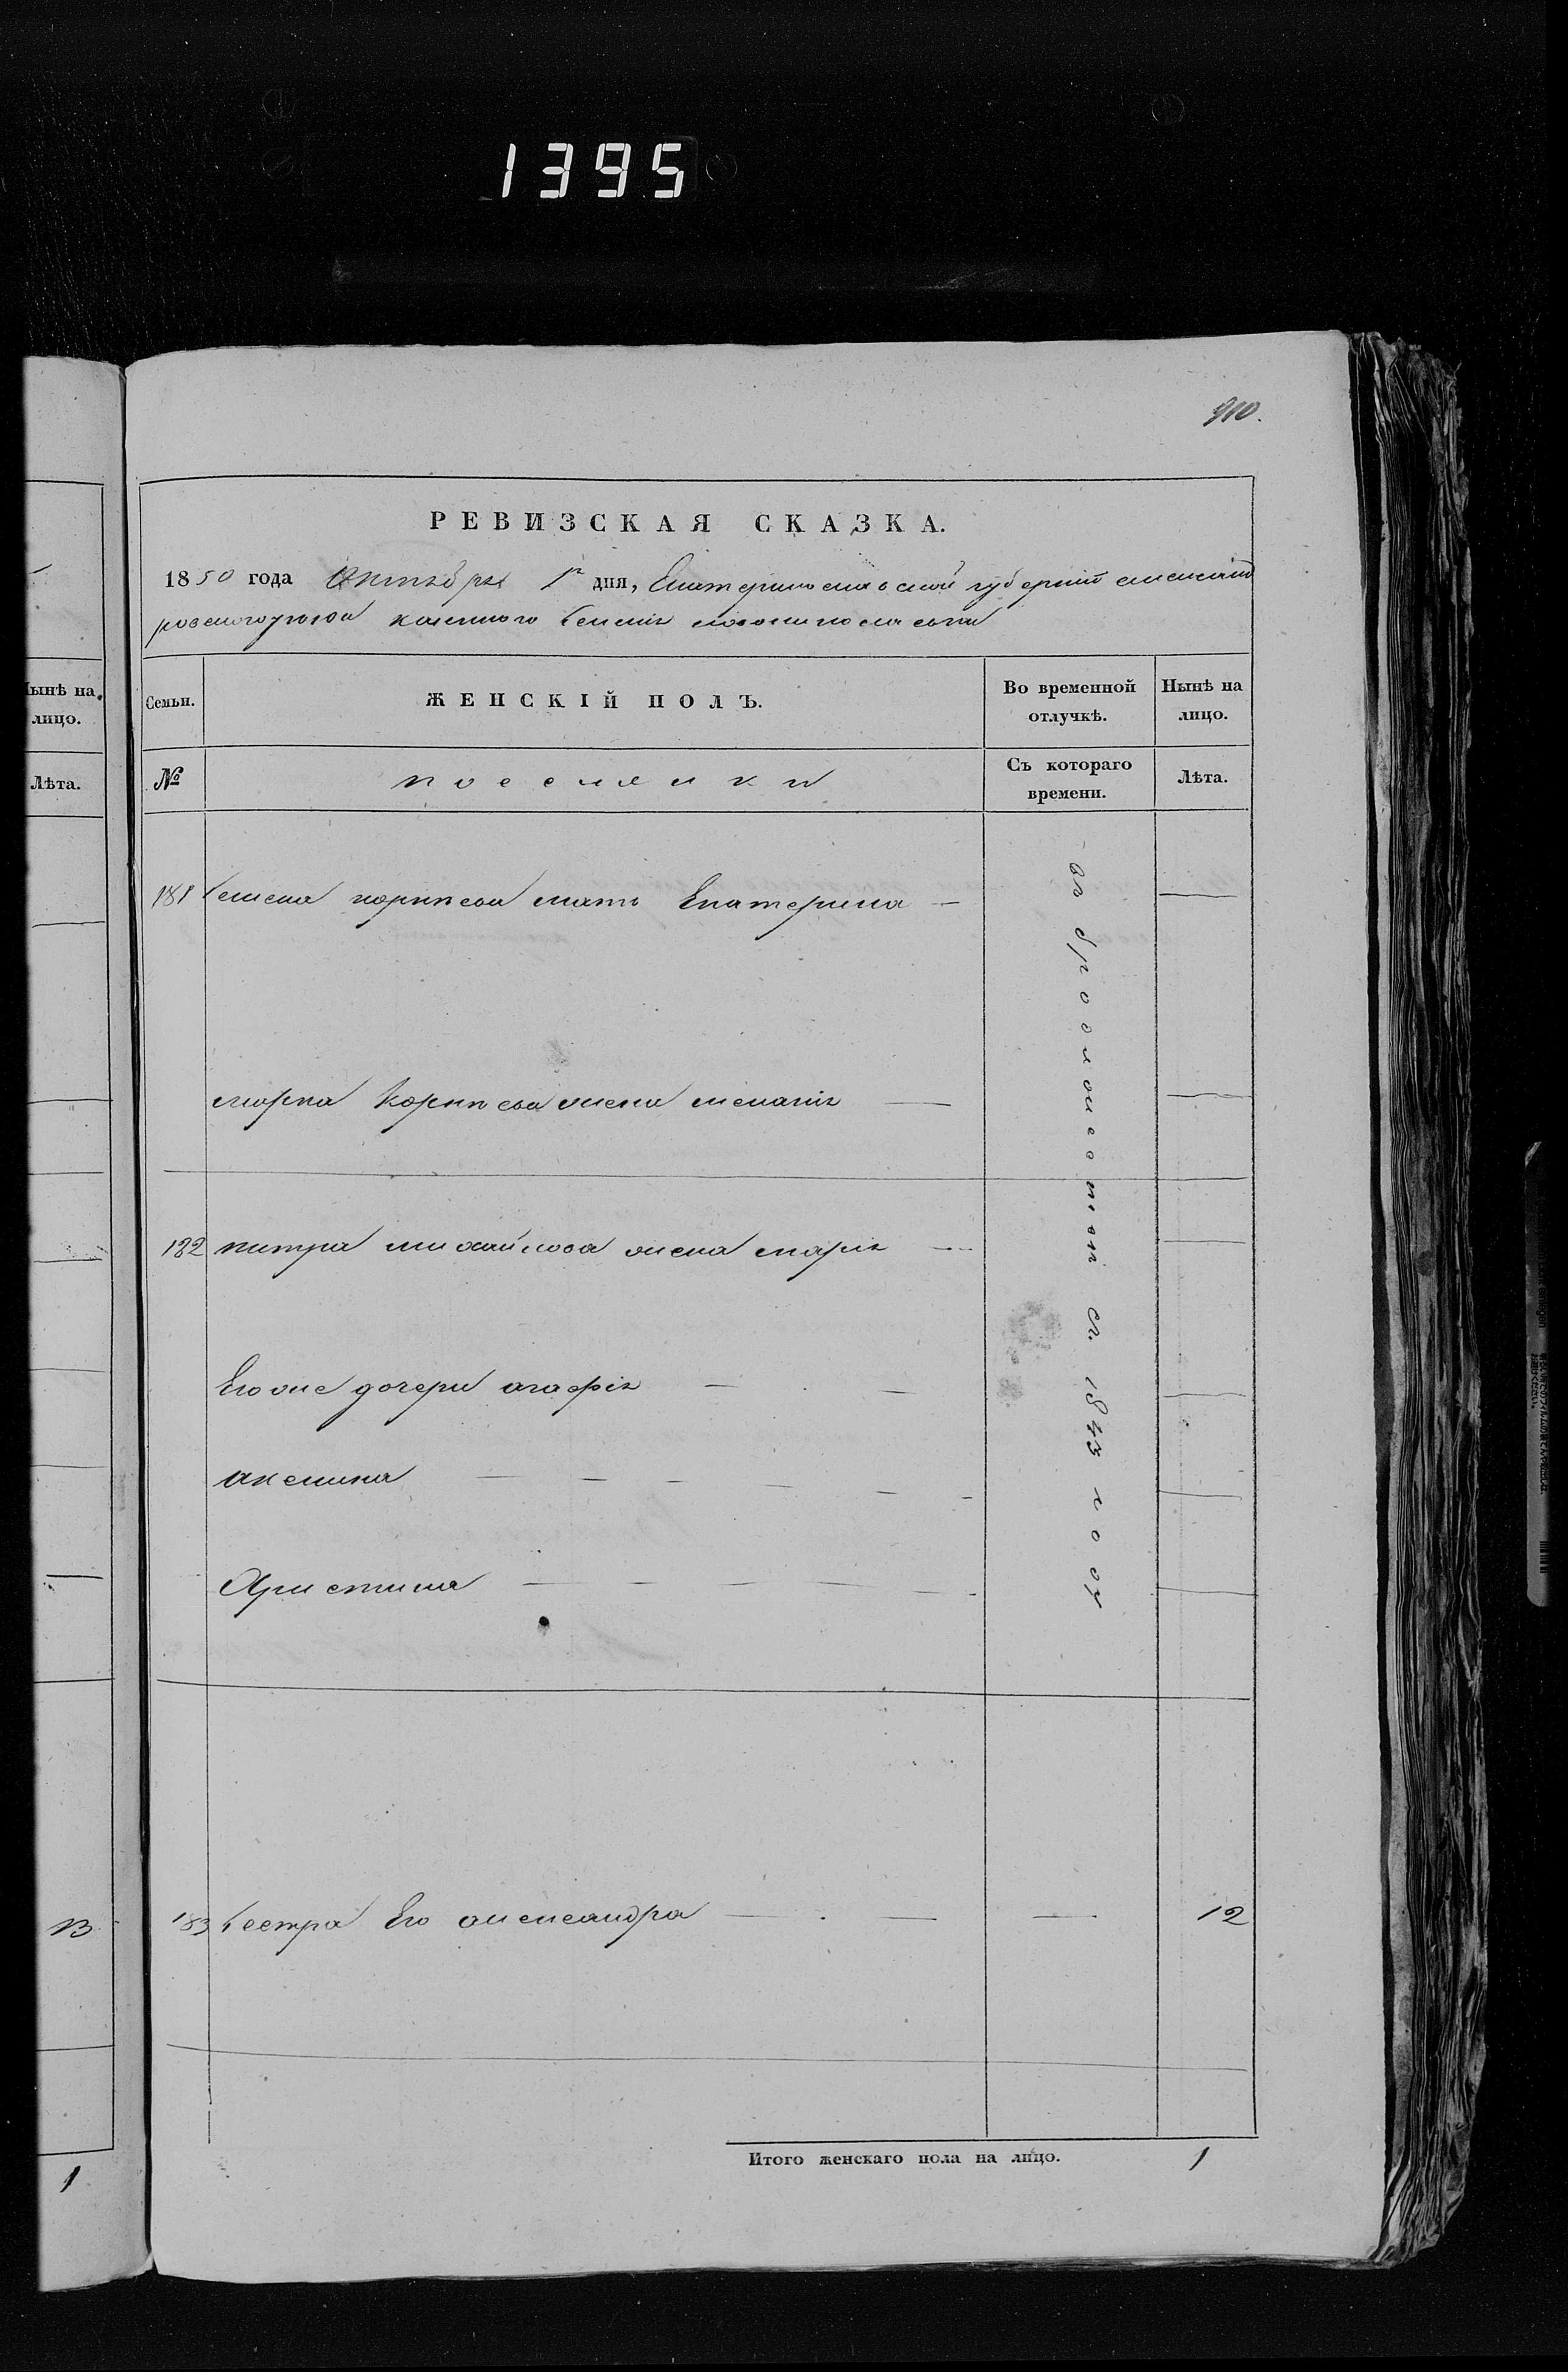 1395
910.
РЕВИЗСКАЯ СКАЗКА.
1850 года Октября 1го дня, Екатеринославской губернии александ
ровского уезда казенного селения новониколаевки
Нынѣ на лицо.
Лѣта.
Семьи.
ЖЕНСКІЙ ПОЛЪ.
Во временной отлучкѣ.
Нынѣ на лицо.
№
поселянки
Съ котораго времени.
Лѣта.
181 Семена карпова мать Екатерина —
марка Карпова жена меланія —
182 петра михайлова жена марія —
Его же дочери агафія —
аксинья —
Христина —
въ бродяжестве съ 1843 году
13
183 Сестра Его александра — — 12
Итого женскаго пола на лицо. 1
1